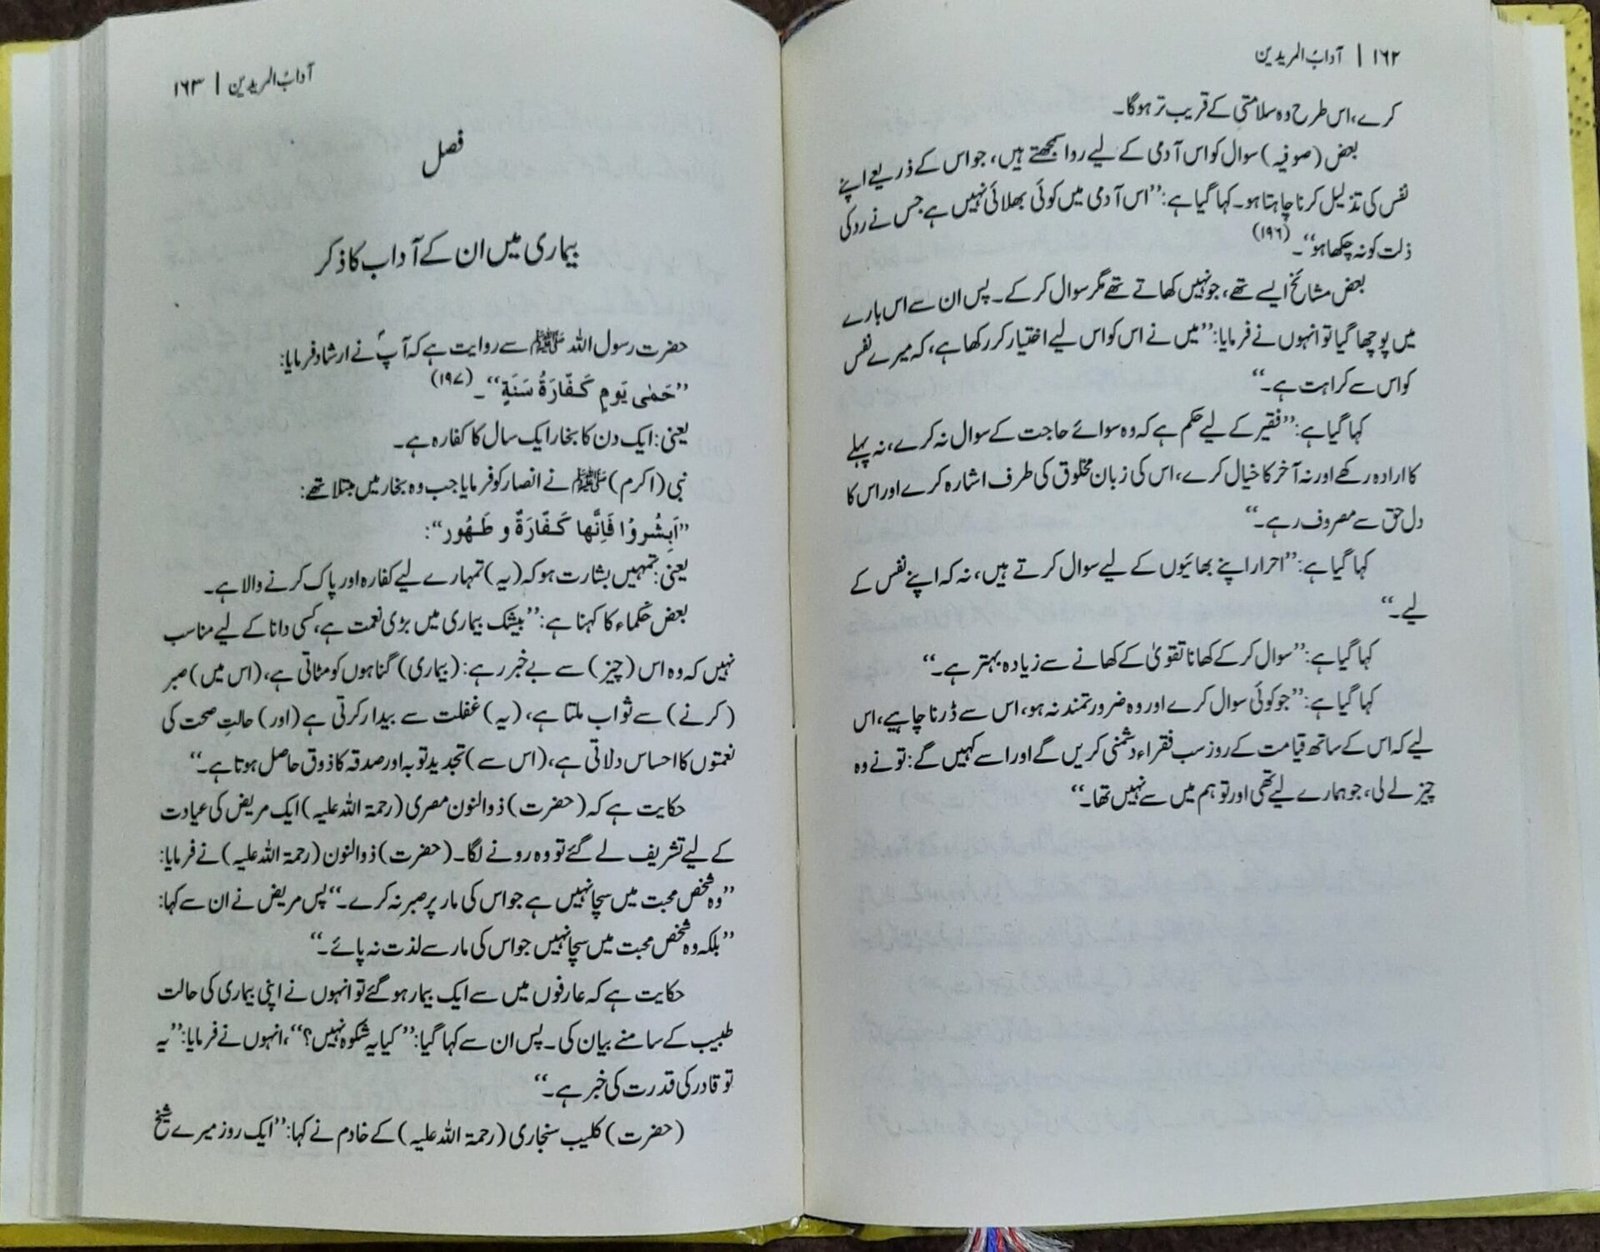 ۱۶۲ | آدابُ المریدین
کرے، اس طرح وہ سلامتی کے قریب تر ہوگا۔
بعض (صوفیہ) سوال کو اس آدمی کے لیے روا سمجھتے ہیں، جو اس کے ذریعے اپنے
نفس کی تذلیل کرنا چاہتا ہو۔ کہا گیا ہے: ’’اس آدمی میں کوئی بھلائی نہیں ہے جس نے رد کی
ذلت کو نہ چکھا ہو‘‘۔ (۱۹۶)
بعض مشائخ ایسے تھے، جو نہیں کھاتے تھے مگر سوال کر کے۔ پس ان سے اس بارے
میں پوچھا گیا تو انہوں نے فرمایا: ’’میں نے اس کو اس لیے اختیار کر رکھا ہے، کہ میرے نفس
کو اس سے کراہت ہے۔‘‘
کہا گیا ہے: ’’فقیر کے لیے حکم ہے کہ وہ سوائے حاجت کے سوال نہ کرے، نہ پہلے
کا ارادہ رکھے اور نہ آخر کا خیال کرے، اس کی زبان مخلوق کی طرف اشارہ کرے اور اس کا
دل حق سے مصروف رہے۔‘‘
کہا گیا ہے: ’’احرار اپنے بھائیوں کے لیے سوال کرتے ہیں، نہ کہ اپنے نفس کے
لیے۔‘‘
کہا گیا ہے: ’’سوال کر کے کھانا تقویٰ کے کھانے سے زیادہ بہتر ہے۔‘‘
کہا گیا ہے: ’’جو کوئی سوال کرے اور وہ ضرورتمند نہ ہو، اس سے ڈرنا چاہیے، اس
لیے کہ اس کے ساتھ قیامت کے روز سب فقراء دشمنی کریں گے اور اسے کہیں گے: تو نے وہ
چیز لے لی، جو ہمارے لیے تھی اور تو ہم میں سے نہیں تھا۔‘‘
آدابُ المریدین | ۱۶۳
فصل
بیماری میں ان کے آداب کا ذکر
حضرت رسول اللہ ﷺ سے روایت ہے کہ آپؐ نے ارشاد فرمایا:
’’حَمٰی یَومٍ کَفَّارَۃُ سَنَۃٍ‘‘۔ (۱۹۷)
یعنی: ایک دن کا بخار ایک سال کا کفارہ ہے۔
نبی (اکرم) ﷺ نے انصار کو فرمایا جب وہ بخار میں مبتلا تھے:
’’اَبِشُروُا فَاِنَّھا کَفَّارَۃٌ و طَھُور‘‘:
یعنی: تمہیں بشارت ہو کہ (یہ) تمہارے لیے کفارہ اور پاک کرنے والا ہے۔
بعض حُکماء کا کہنا ہے: ’’بیشک بیماری میں بڑی نعمت ہے، کسی دانا کے لیے مناسب
نہیں کہ وہ اس (چیز) سے بے خبر رہے: (بیماری) گناہوں کو مٹاتی ہے، (اس میں) صبر
(کرنے) سے ثواب ملتا ہے، (یہ) غفلت سے بیدار کرتی ہے (اور) حالتِ صحت کی
نعمتوں کا احساس دلاتی ہے، (اس سے) تجدید توبہ اور صدقہ کا ذوق حاصل ہوتا ہے۔‘‘
حکایت ہے کہ (حضرت) ذوالنون مصری (رحمۃ اللہ علیہ) ایک مریض کی عیادت
کے لیے تشریف لے گئے تو وہ رونے لگا۔ (حضرت) ذوالنون (رحمۃ اللہ علیہ) نے فرمایا:
’’وہ شخص محبت میں سچا نہیں ہے جو اس کی مار پر صبر نہ کرے۔‘‘ پس مریض نے ان سے کہا:
’’بلکہ وہ شخص محبت میں سچا نہیں جو اس کی مار سے لذت نہ پائے۔‘‘
حکایت ہے کہ عارفوں میں سے ایک بیمار ہو گئے تو انہوں نے اپنی بیماری کی حالت
طبیب کے سامنے بیان کی۔ پس ان سے کہا گیا: ’’کیا یہ شکوہ نہیں؟‘‘، انہوں نے فرمایا: ’’یہ
تو قادر کی قدرت کی خبر ہے۔‘‘
(حضرت) کلیب سنجاری (رحمۃ اللہ علیہ) کے خادم نے کہا: ’’ایک روز میرے شیخ